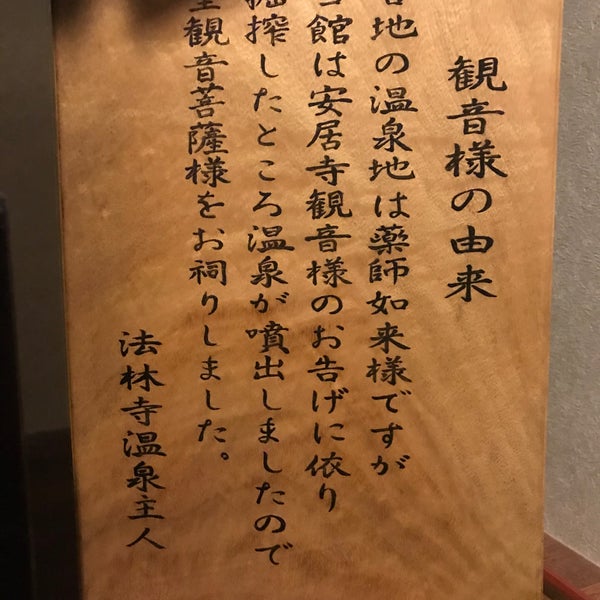 観音様の由来
各地の温泉地は薬師如来様ですが
当館は安居寺観音様のお告げに依り
掘搾したところ温泉が噴出しましたので
聖観音菩薩様をお祠りしました。
法林寺温泉主人